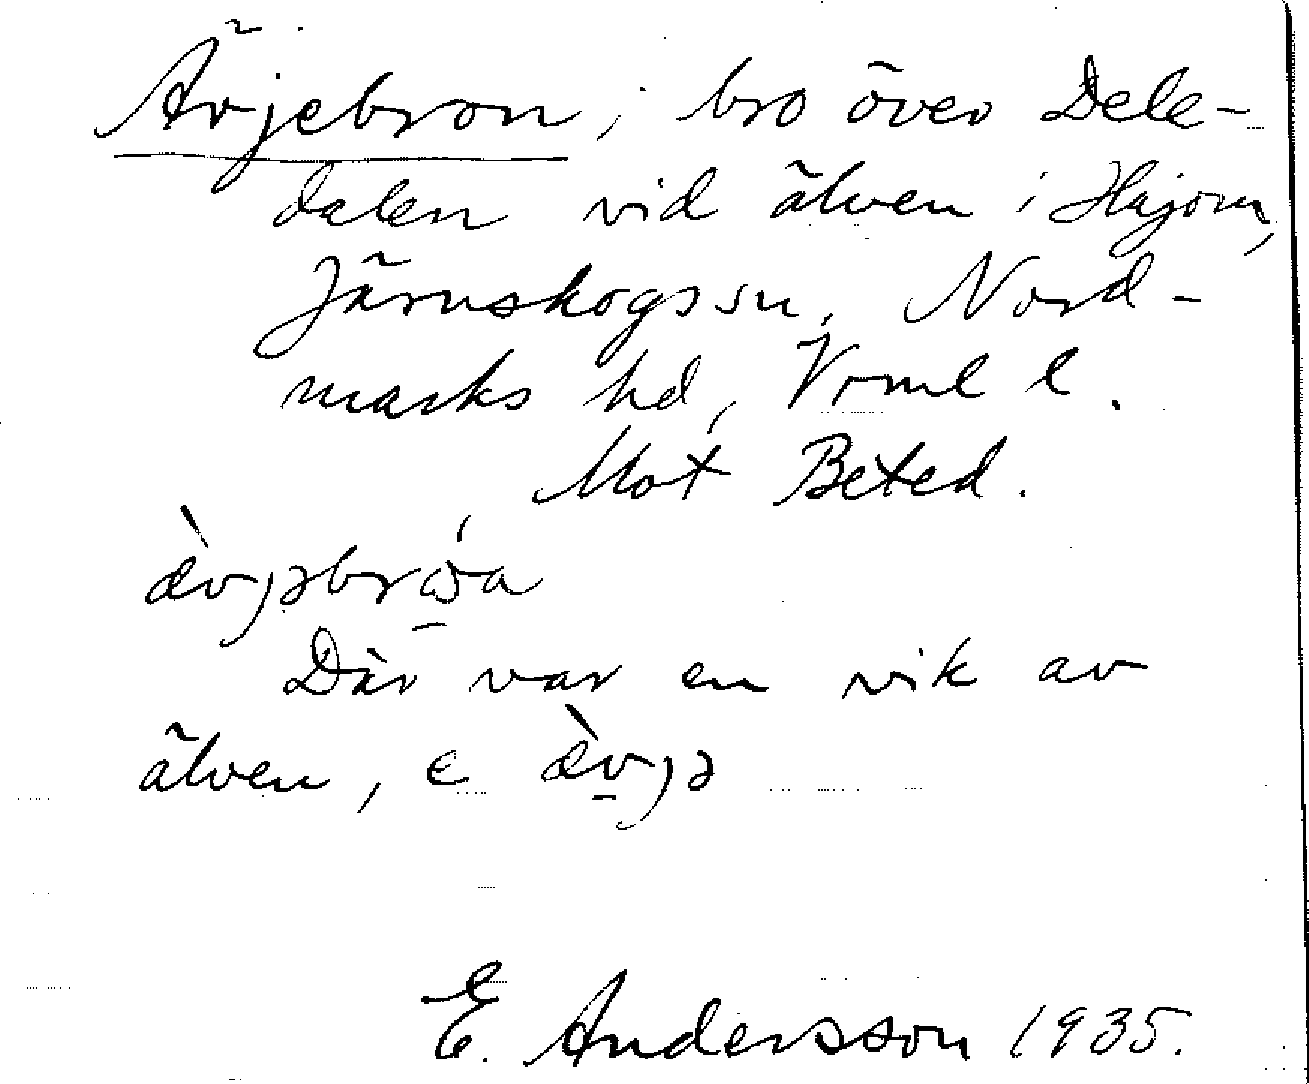 Ävjebron; bro över Dele-
dalen vid älven i Hajom,
Järnskogs sn, Nord-
marks hd, Vrml l.
Mot Beted.
æ̀vjəbrώ̨a
Där var en vik av
älven, e æ̀vjə
E. Andersson 1935.